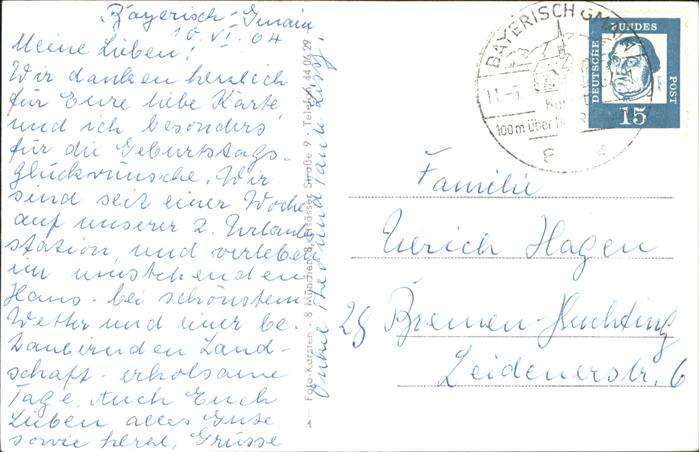 Bayerisch-Gmain
10. VI. 64
Meine Lieben!
Wir danken herzlich
für Eure liebe Karte
und ich besonders
für die Geburtstags-
glückwünsche. Wir
sind seit einer Woche
auf unserer 2. Urlaubs
station, und verleben
im umstehenden
Haus bei schönstem
Wetter und einer be-
zaubernden Land-
schaft erholsame
Tage. Auch Euch
Lieben alles Gute
sowie herzl. Grüsse
Foto-Karsten · 8 München Straße 9 · Telefon 44 06 29
BAYERISCH GMAIN
DEUTSCHE BUNDES POST
15
Familie
Ulrich Hagen
28 Bremen-Huchting
Leidenerstr. 6